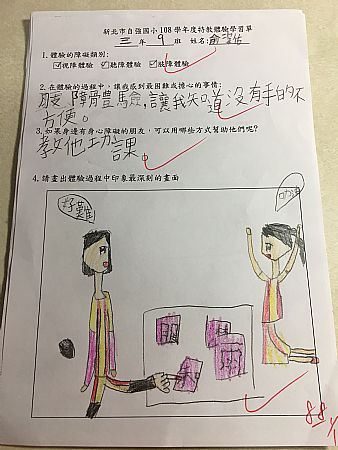 新北市自強國小108學年度特教體驗學習單
三年9班 姓名:
1.體驗的障礙類別:
☑視障體驗 ☑聽障體驗 ☑肢障體驗
2.在體驗的過程中,讓我感到最困難或擔心的事情:
肢障體驗,讓我知道沒有手的不
方便。
3.如果身邊有身心障礙的朋友,可以用哪些方式幫助他們呢?
教他功課。
4.請畫出體驗過程中印象最深刻的畫面
好難
88